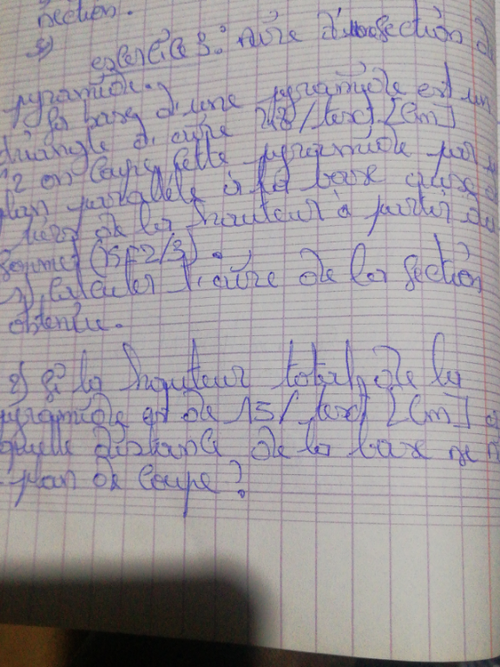 section.
5)
exercice 3: Aire d'une section d
pyramide.
la base d'une pyramide est un
triangle d'aire /text [Cm]
2 on coupe cette pyramide par
plan parallèle à la base
de la hauteur à partir du
sommet (2/3).
1) Calculer l'aire de la section
obtenue.
2) Si la hauteur totale de la
pyramide est de 15/text [Cm]
quelle distance de la base se
plan de coupe?